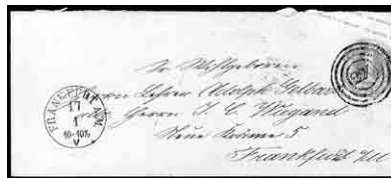 FRANKFURT A.M.
17
1
10-10½
V
Sr Wohlgeboren
Herrn Lehrer Adolph Gelbar
Herrn J. C. Wiegand
Neue Kräme 5
Frankfurt